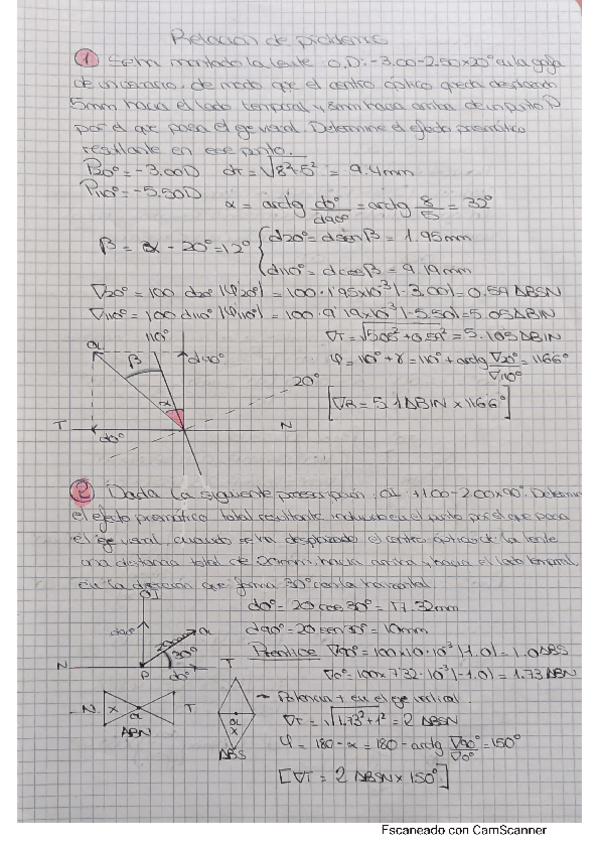 Relación de problemas
① Se ha montado la lente O.D: -3.00-2.50x20° en la gafa
de un usuario, de modo que el centro óptico queda desplazado
5mm hacia el lado temporal y 8mm hacia arriba de un punto P
por el que pasa el eje visual. Determine el efecto prismático
resultante en ese punto.
P20° = -3.00D dt = √8²+5² = 9.4mm
P110° = -5.50D α = arctg d0°/d90° = arctg 8/5 = 32°
β = α - 20° = 12° { d20° = d sen β = 1.95mm
d110° = d cos β = 9.19mm
∇20° = 100 d20° |φ20°| = 100·1.95x10⁻³ |-3.00| = 0.59 ΔBSN
∇110° = 100 d110° |φ110°| = 100·9.19x10⁻³ |-5.50| = 5.05 ΔBIN
∇T = √5.05²+0.59² = 5.105 ΔBIN
φ = 110° + γ = 110° + arctg ∇20°/∇110° = 116.6°
[∇R = 5.1 ΔBIN x 116.6°]
110°
a
β
d90°
20°
α
T
N
d0°
② Dada la siguiente prescripción: OI +1.00-2.00x90°. Determine
el efecto prismático total resultante inducido en el punto por el que pasa
el eje visual, cuando se ha desplazado el centro óptico de la lente
una distancia total de 20mm, hacia arriba y hacia el lado temporal,
en la dirección que forma 30° con la horizontal
d0° = 20 cos 30° = 17.32mm
d90° = 20 sen 30° = 10mm
Prentice ∇90° = 100x10·10⁻³ |1.0| = 1.0 ΔBS
∇0° = 100x17.32·10⁻³ |-1.0| = 1.73 ΔBN
d90°
20mm
a
30°
N
P
d0°
T
→ Potencia + en el eje vertical.
N
x
a
T
ΔBN
a
x
ΔBS
∇T = √1.73²+1² = 2 ΔBSN
φ = 180 - α = 180 - arctg ∇90°/∇0° = 150°
[∇T = 2 ΔBSN x 150°]
Escaneado con CamScanner